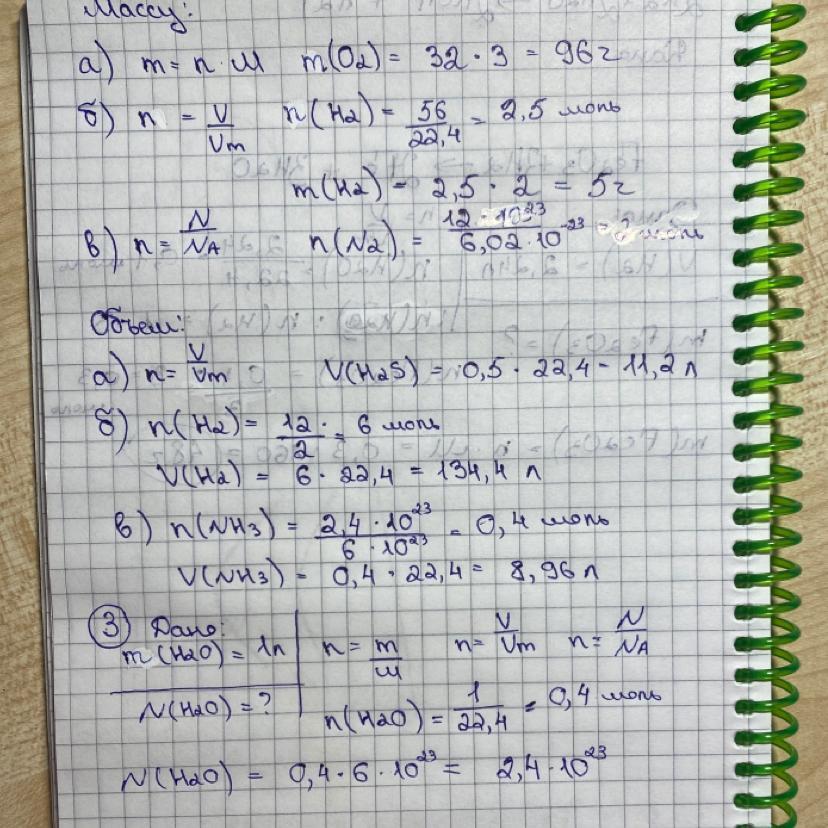 Массу:
а) m = n · M m(O2) = 32 · 3 = 96 г
б) n = V/Vm n(H2) = 56/22,4 = 2,5 моль
m(H2) = 2,5 · 2 = 5 г
в) n = N/NA n(N2) = 12 · 10²³/6,02 · 10⁻²³ = 2 моль
Объем:
а) n = V/Vm V(H2S) = 0,5 · 22,4 = 11,2 л
б) n(H2) = 12/2 = 6 моль
V(H2) = 6 · 22,4 = 134,4 л
в) n(NH3) = 2,4 · 10²³/6 · 10²³ = 0,4 моль
V(NH3) = 0,4 · 22,4 = 8,96 л
3 Дано:
m(H2O) = 1л n = m/M n = V/Vm n = N/NA
N(H2O) = ? n(H2O) = 1/22,4 = 0,4 моль
N(H2O) = 0,4 · 6 · 10²³ = 2,4 · 10²³